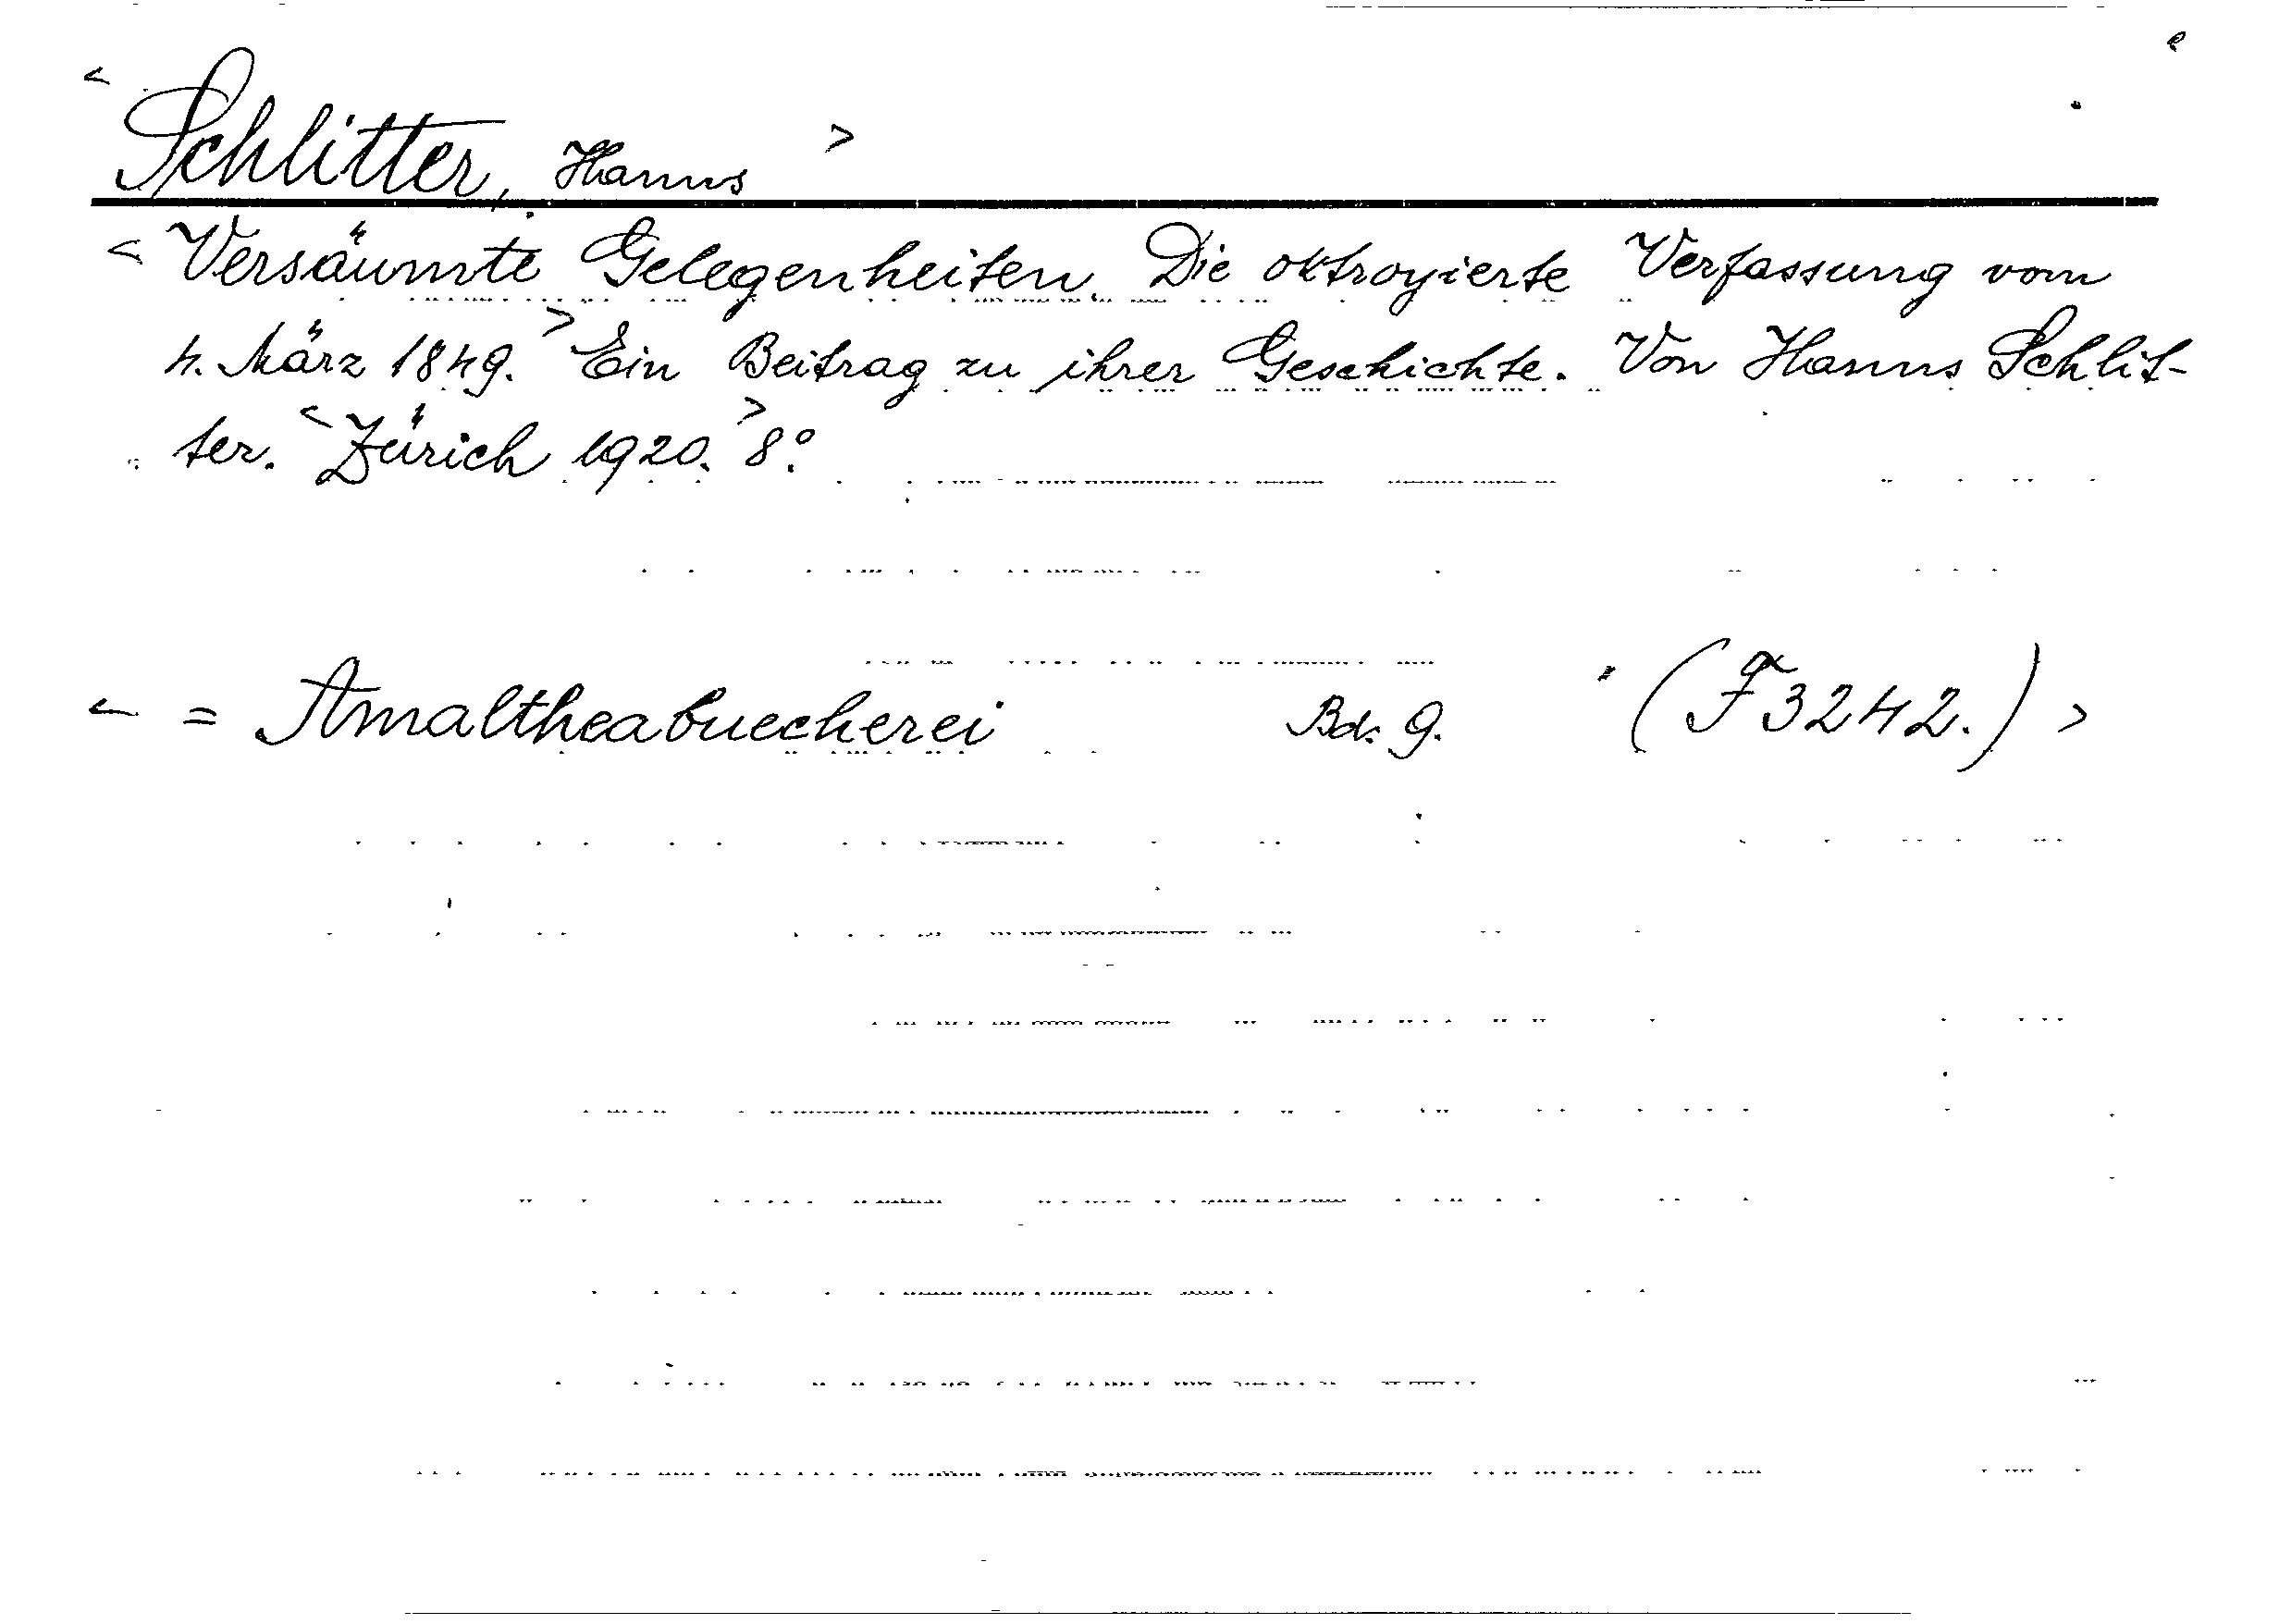 < Schlitter, Hanns >
< Versäumte Gelegenheiten. Die oktroyierte Verfassung vom
4. März 1849. > Ein Beitrag zu ihrer Geschichte. Von Hanns Schlit-
ter. < Zürich 1920. > 8°.
< = Amaltheabuecherei Bd. 9. (F 3242.) >